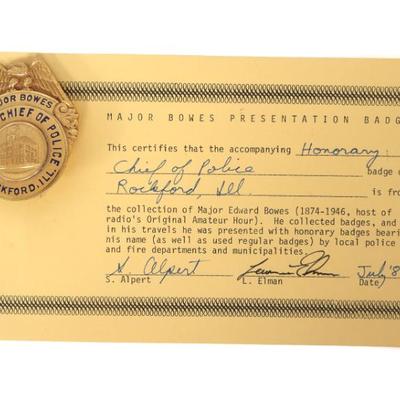 JOR BOWES
CHIEF OF POLICE
CKFORD, ILL.
MAJOR BOWES PRESENTATION BADG
This certifies that the accompanying Honorary:
Chief of Police badge o
Rockford, Ill. is fro
the collection of Major Edward Bowes (1874-1946, host of
radio's Original Amateur Hour). He collected badges, and
in his travels he was presented with honorary badges beari
his name (as well as used regular badges) by local police
and fire departments and municipalities.
S. Alpert
July '8
S. Alpert L. Elman Date